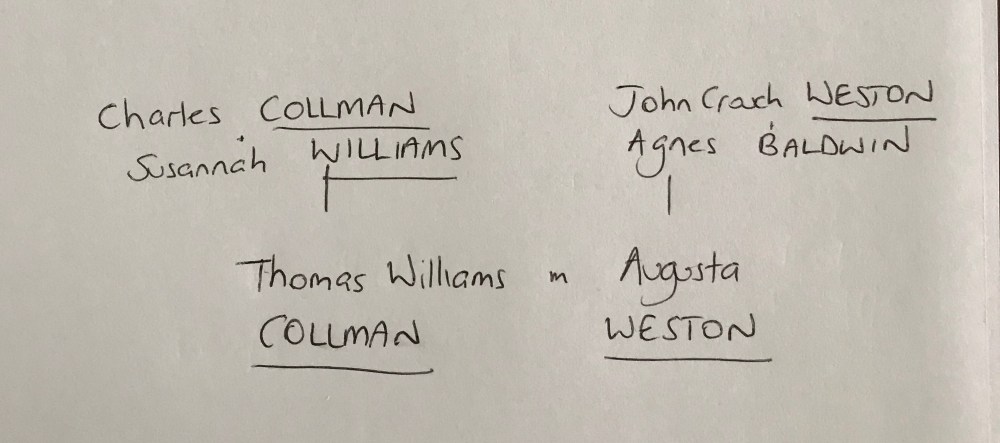 Charles COLLMAN
Susannah WILLIAMS
John Crach WESTON
Agnes BALDWIN
Thomas Williams m Augusta
COLLMAN WESTON